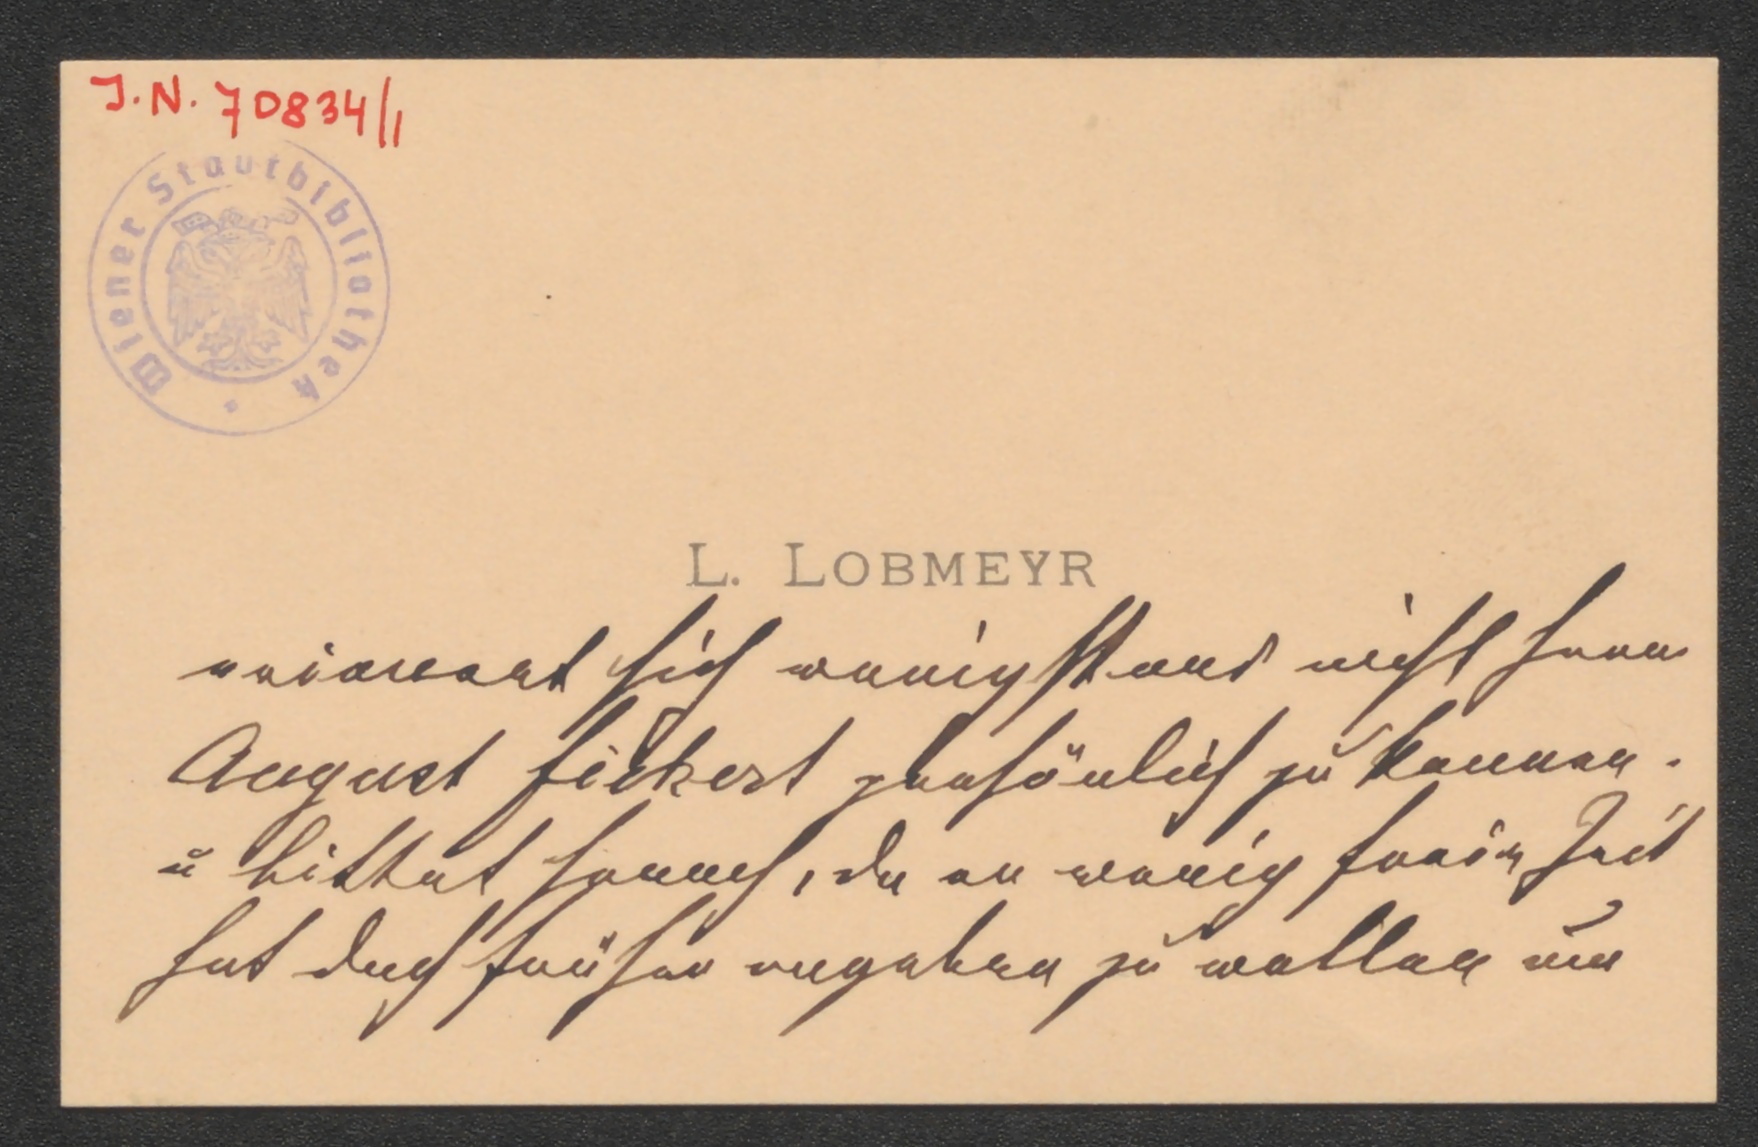 J.N. 70834/1
Wiener Stadtbibliothek
L. LOBMEYR
erinnert sich wenigstens nicht Herrn
August Fickert persönlich zu kennen.
u bittet hernach, da er wenig freie Zeit
hat doch früher angeben zu wollen um